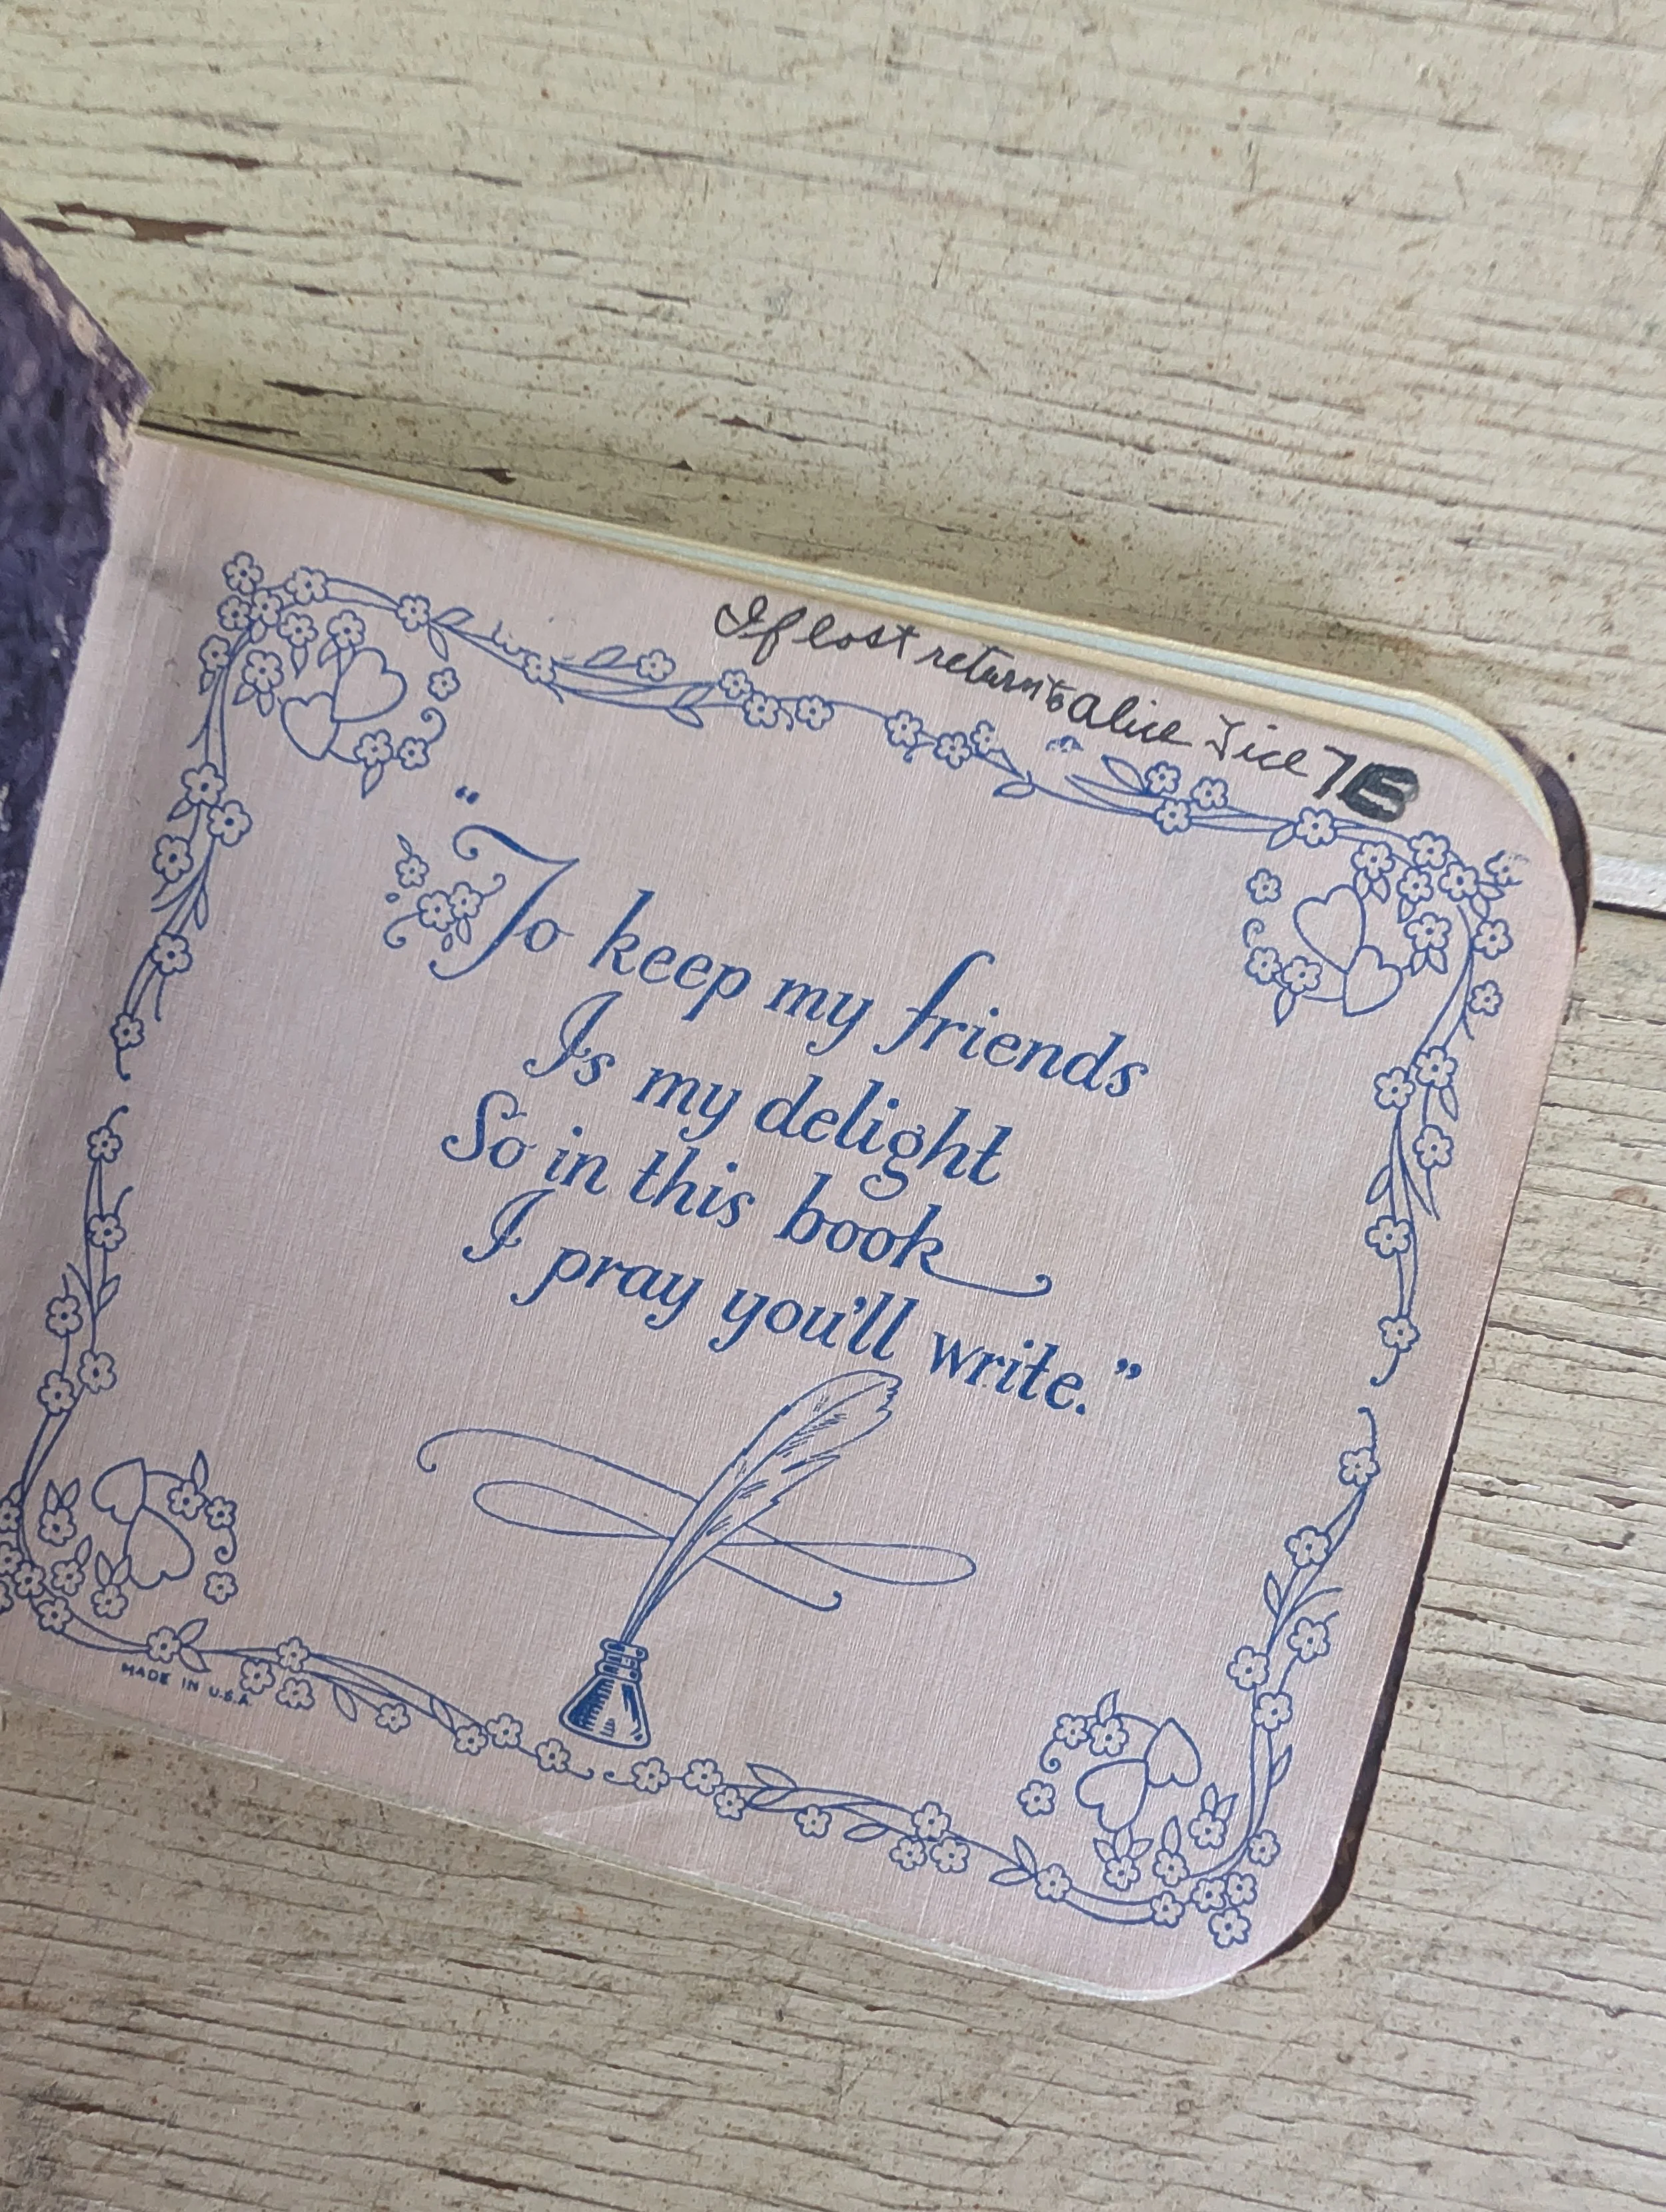 If lost return to Alice Tice 7B
“To keep my friends
Is my delight
So in this book
I pray you'll write.”
MADE IN U.S.A.